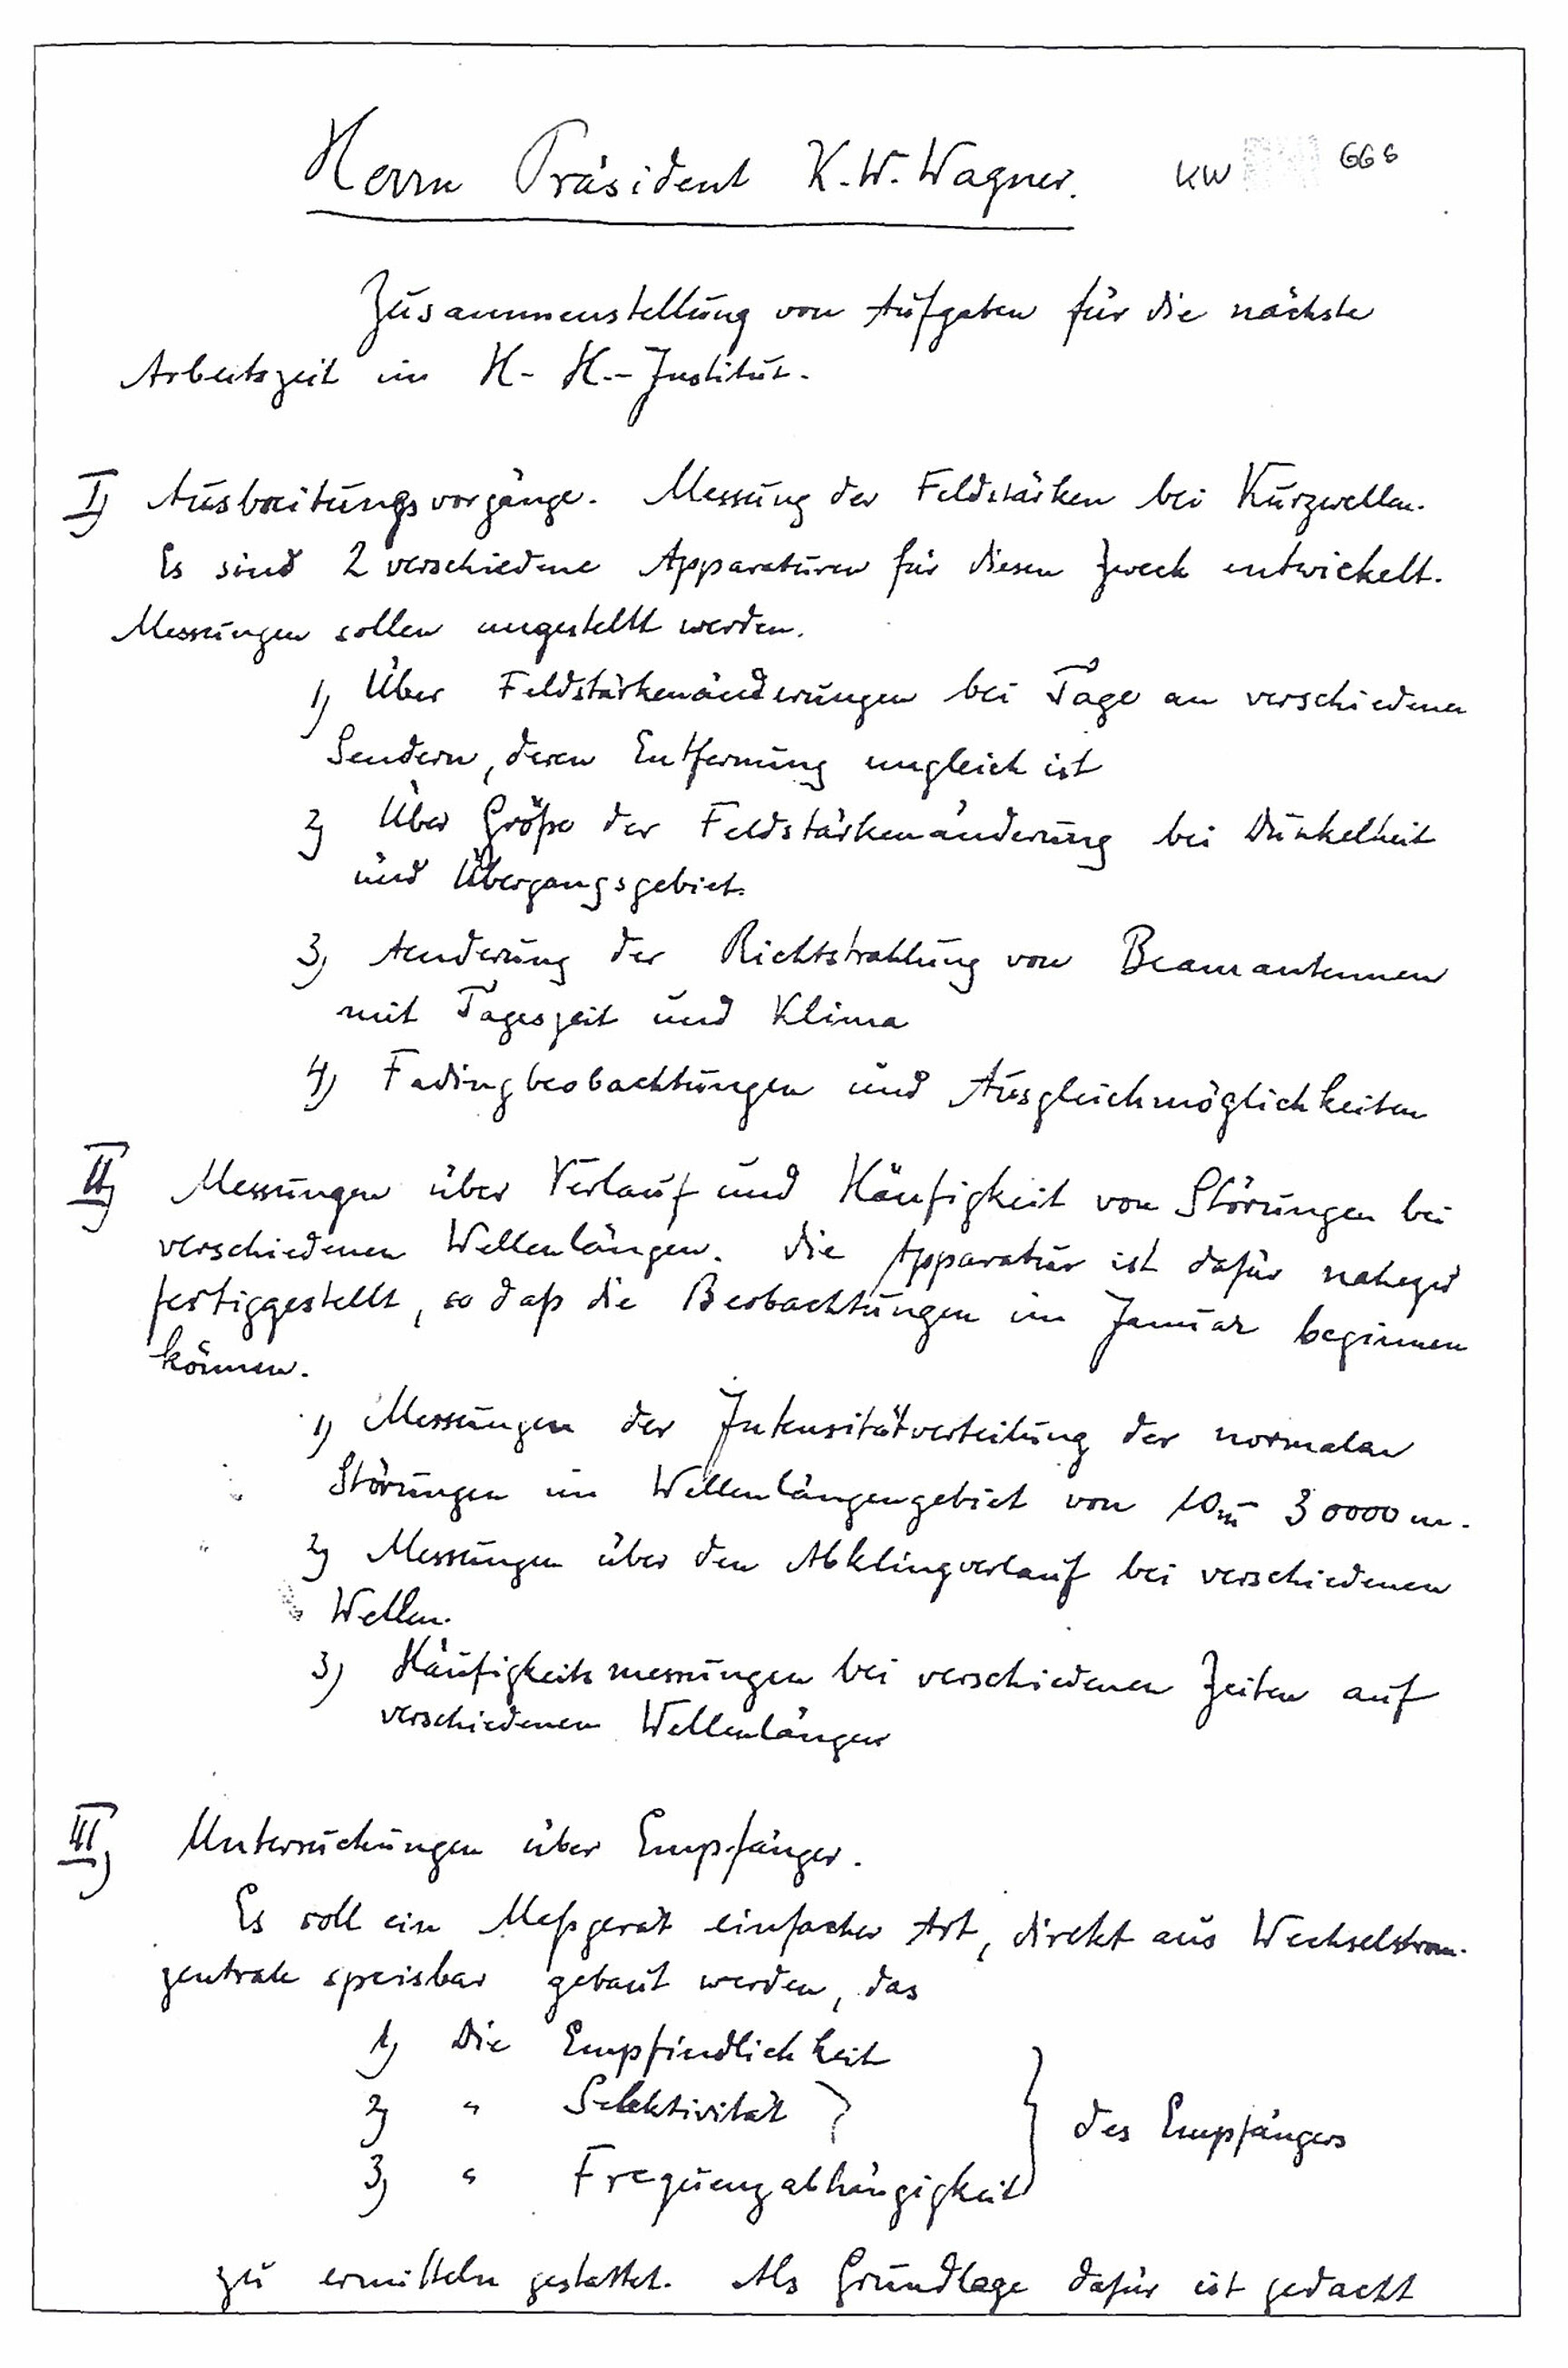 Herrn Präsident K.W. Wagner. KW 666
Zusammenstellung von Aufgaben für die nächste
Arbeitszeit im H.-H.-Institut.
I) Ausbreitungsvorgänge. Messung der Feldstärken bei Kurzwellen.
Es sind 2 verschiedene Apparaturen für diesen Zweck entwickelt.
Messungen sollen angestellt werden.
1) Über Feldstärkenänderungen bei Tage an verschiedenen
Sendern, deren Entfernung ungleich ist
2) Über Größe der Feldstärkenänderung bei Dunkelheit
und Übergangsgebiet.
3) Aenderung der Richtstrahlung von Beamantennen
mit Tageszeit und Klima
4) Fadingbeobachtungen und Ausgleichmöglichkeiten
II) Messungen über Verlauf und Häufigkeit von Störungen bei
verschiedenen Wellenlängen. Die Apparatur ist dafür nahezu
fertiggestellt, so daß die Beobachtungen im Januar beginnen
können.
1) Messungen der Intensitätverteilung der normalen
Störungen im Wellenlängengebiet von 10m - 30000 m.
2) Messungen über den Abklingverlauf bei verschiedenen
Wellen.
3) Häufigkeitsmessungen bei verschiedenen Zeiten auf
verschiedenen Wellenlängen
III) Untersuchungen über Empfänger.
Es soll ein Meßgerät einfacher Art, direkt aus Wechselstrom-
zentrale speisbar gebaut werden, das
1) Die Empfindlichkeit
2) " Selektivität } des Empfängers
3) " Frequenzabhängigkeit
zu ermitteln gestattet. Als Grundlage dafür ist gedacht